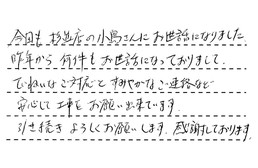 今回も杉並店の小島さんにお世話になりました。
昨年から何件もお世話になっておりまして、
ていねいなご対応とすみやかなご連絡など
安心して工事をお願い出来ています。
引き続きよろしくお願いします。感謝しております。